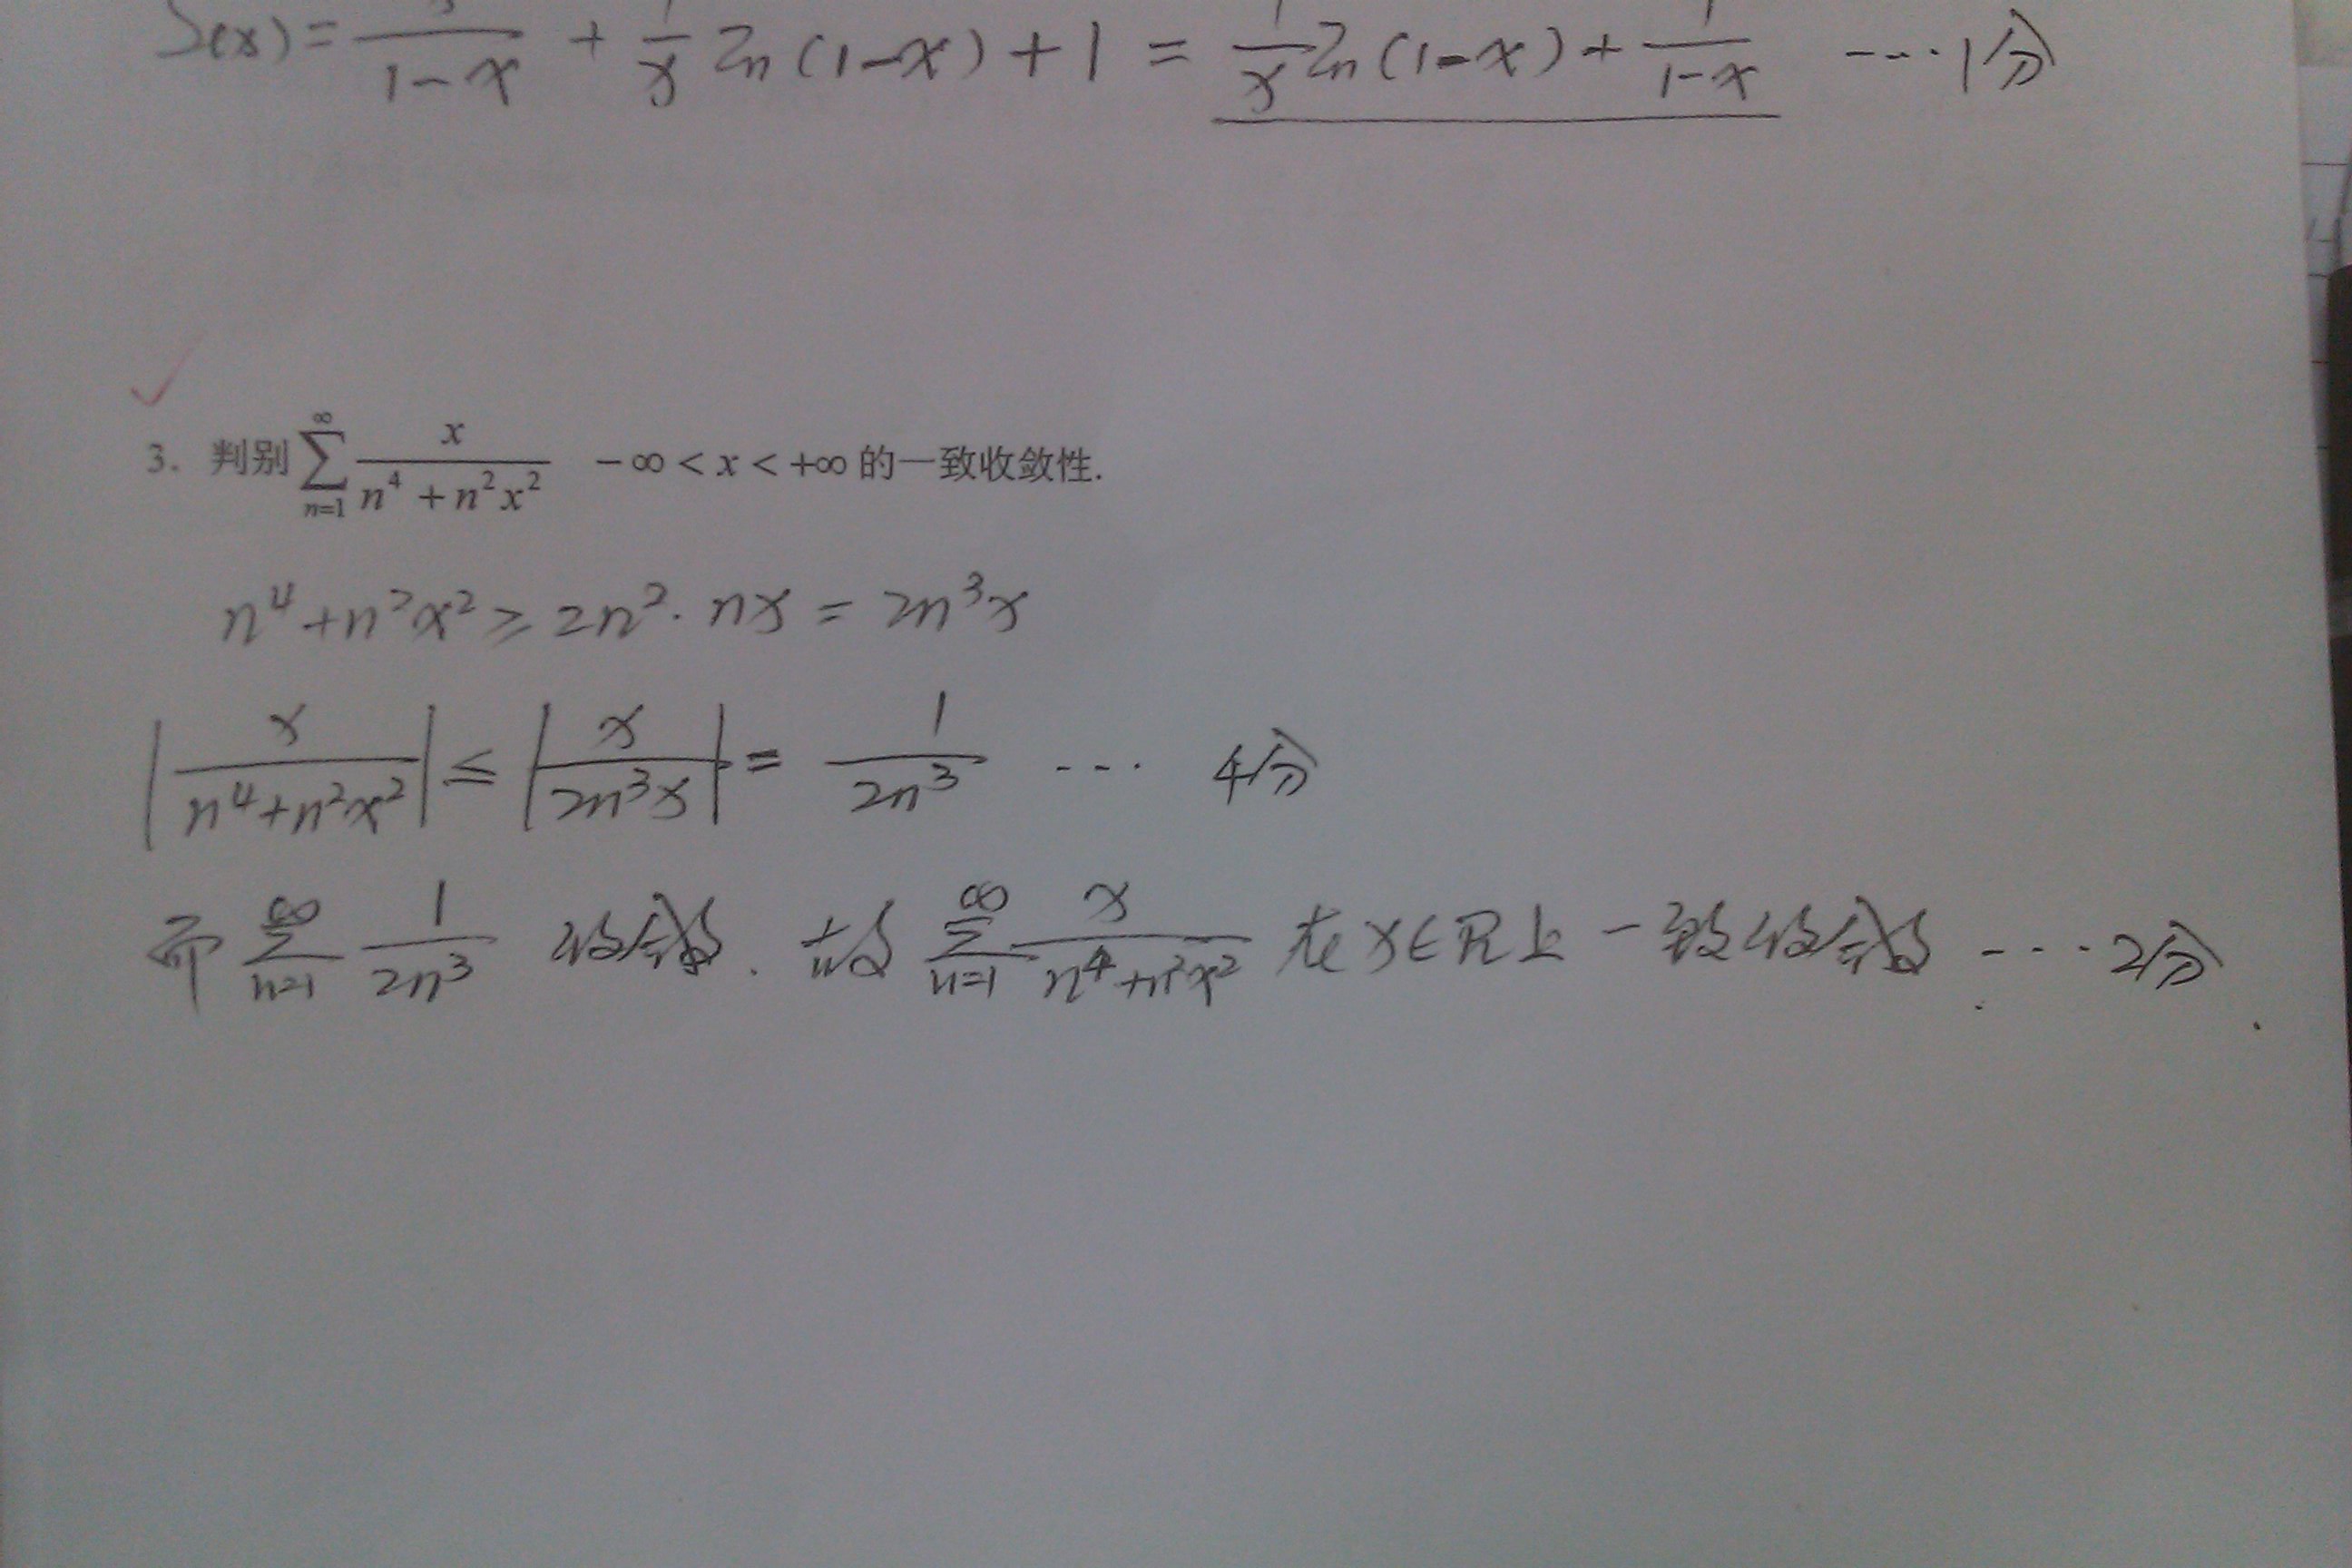 S(x) = x/(1-x) + 1/x ln(1-x) + 1 = 1/x ln(1-x) + 1/(1-x) ---·1分
3. 判别 ∑_{n=1}^{∞} x/(n^4+n^2x^2) -∞ < x < +∞ 的一致收敛性.
n^4+n^2x^2 ≥ 2n^2·nx = 2n^3x
|x/(n^4+n^2x^2)| ≤ |x/(2n^3x)| = 1/(2n^3) --- 4分
而 ∑_{n=1}^{∞} 1/(2n^3) 收敛. 故 ∑_{n=1}^{∞} x/(n^4+n^2x^2) 在 x∈R上一致收敛 ---·2分